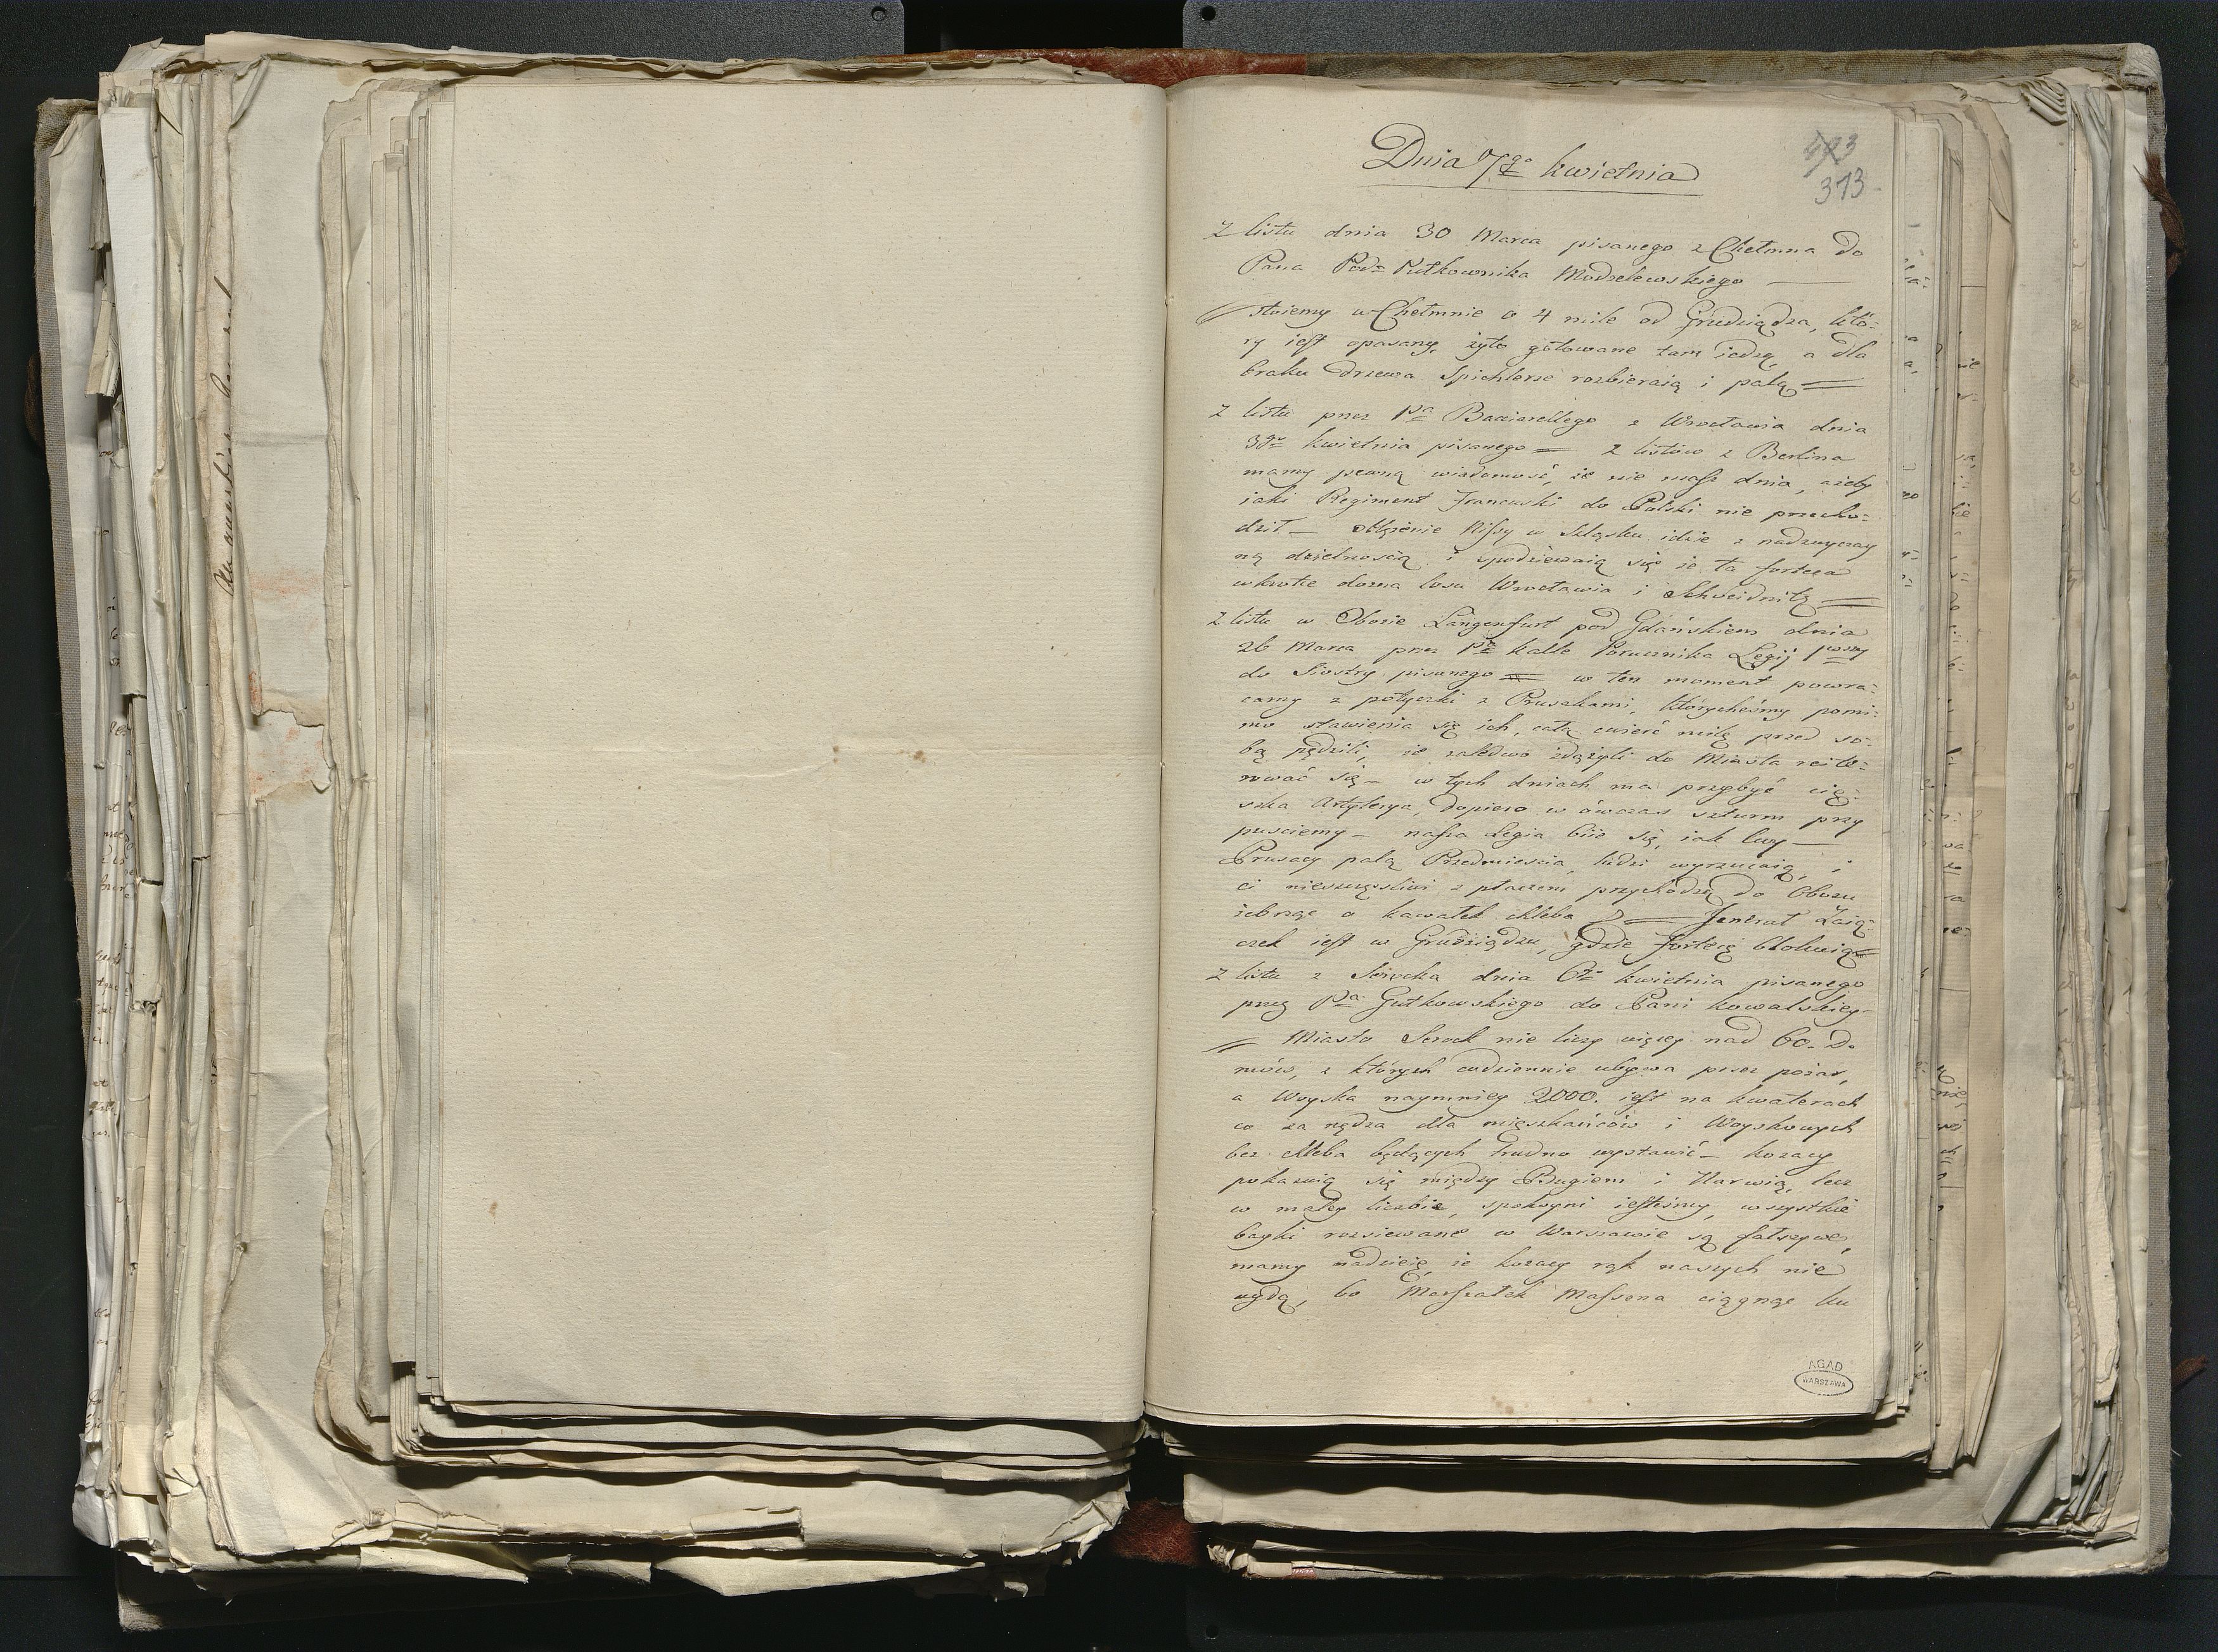 Dnia 7go kwietnia
423
373
Z listu dnia 30 Marca pisanego z Chełmna do
Pana Pod= Pułkownika Modzelewskiego —
stoiemy w Chełmnie o 4 mile od Grudziądza, któ=
ry iest opasany, żyto gotowane tam iedzą, a dla
braku drzewa Spichlerze rozbieraią i palą =
Z listu przez Pa Bacciarellego z Wrocławia dnia
3go kwietnia pisanego = Z listów z Berlina
mamy pewną wiadomość, że nie masz dnia, ażeby
iaki Regiment Francuski do Polski nie przecho=
dził — oblężenie Nissy w Szląsku idzie z nadzwyczay
ną dzielnoscią i spodziewaią się że ta forteca
wkrotce dozna losu Wrocławia i Schweidnitz =
Z listu w Obozie Langenfurt pod Gdańskiem dnia
26 Marca przez Pa Kallo Porucznika Legij 1wszey
do Siostry pisanego = w ten moment powra=
camy z potyczki z Prusakami, którycheśmy pomi=
mo stawienia się ich, całą cwierć milę przed so=
bą pędzili, że zaledwo zdążyli do Miasta reite=
rować się — w tych dniach ma przybyć cięż=
szka Artylerya, dopiero w ówczas szturm przy
puściemy — nasza Legia biie się, iak lwy —
Prusacy palą Przedmiescia, ludzi wyrzucaią, i
ci nieszczęsliwi z płaczem przychodzą do Obozu
żebrząc o kawałek chleba = Jenerał Zaią=
czek iest w Grudziądzu, gdzie fortecę blokuią =
Z listu z Serocka dnia 6go kwietnia pisanego
przez Pa Gutkowskiego do Pani Kowalskiey —
= Miasto Serock nie liczy więcey nad 60. Do
mów, z których codziennie ubywa przez pożar,
a Woyska naymniey 2000. iest na kwaterach
co za nędza dla mięszkańców i Woyskowych
bez chleba będących trudno wystawić — kozacy
pokazuią się między Bugiem i Narwią, lecz
w małey liczbie, spokoyni iestesmy, wszystkie
bayki rozsiewane w Warszawie są fałszywe,
mamy nadzieię, że kozacy rąk naszych nie
uydą, bo Marszałek Massena ciągnąc ku
AGAD
WARSZAWA